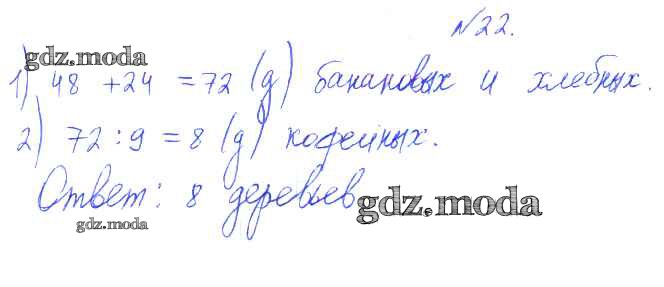 №22.
gdz.moda
1) 48 + 24 = 72 (д) банановых и хлебных.
2) 72 : 9 = 8 (д) кофейных.
Ответ: 8 деревьев
gdz.moda
gdz.moda